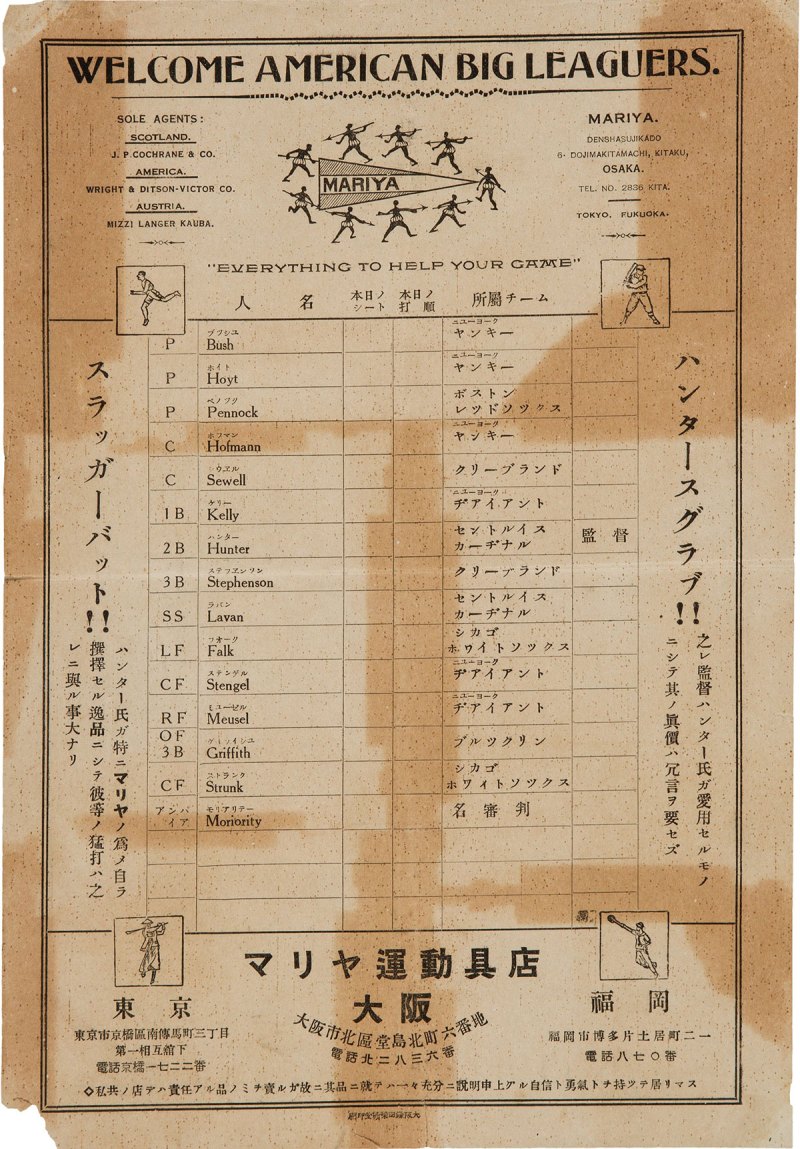 WELCOME AMERICAN BIG LEAGUERS.
SOLE AGENTS:
SCOTLAND.
J. P. COCHRANE & CO.
AMERICA.
WRIGHT & DITSON-VICTOR CO.
AUSTRIA.
MIZZI LANGER KAUBA.
MARIYA
MARIYA.
DENSHASUJIKADO
6- DOJIMAKITAMACHI, KITAKU,
OSAKA.
TEL. NO. 2836 KITA.
TOKYO. FUKUOKA.
"EVERYTHING TO HELP YOUR GAME"
人名 本日ノシート 本日ノ打順 所屬チーム
P ブツシユ Bush ニユーヨーク ヤンキー
P ホイト Hoyt ニユーヨーク ヤンキー
P ペノツク Pennock ボストン レツドソツクス
C ホフマン Hofmann ニユーヨーク ヤンキー
C ウエル Sewell クリーブランド
1B ケリー Kelly ニユーヨーク ヂアイアント
2B ハンター Hunter セントルイス カーヂナル 監督
3B ステフエンソン Stephenson クリーブランド
SS ラバン Lavan セントルイス カーヂナル
LF フオーク Falk シカゴ ホワイトソツクス
CF ステンゲル Stengel ニユーヨーク ヂアイアント
RF ミユーゼル Meusel ニユーヨーク ヂアイアント
OF 3B Griffith ブルツクリン
CF ストランク Strunk シカゴ ホワイトソツクス
アンパイア モリアリテー Moriority 名審判
ハンタースグラブ!!
之レ監督ハンター氏ガ愛用セルモノ
ニシテ其ノ眞價ハ冗言ヲ要セズ
スラッガーバット!!
ハンター氏ガ特ニマリヤノ爲メ自ラ
撰擇セル逸品ニシテ彼等ノ猛打ハ之
レニ與ル事大ナリ
マリヤ運動具店
東京
東京市京橋區南傳馬町三丁目
第一相互舘下
電話京橋一七二二番
大阪
大阪市北區堂島北町六番地
電話北二八三六番
福岡
福岡市博多片土居町二一
電話八七〇番
◇私共ノ店デハ責任アル品ノミヲ賣ルガ故ニ其品ニ就テハ一々充分ニ説明申上グル自信ト勇氣トヲ持ツテ居リマス